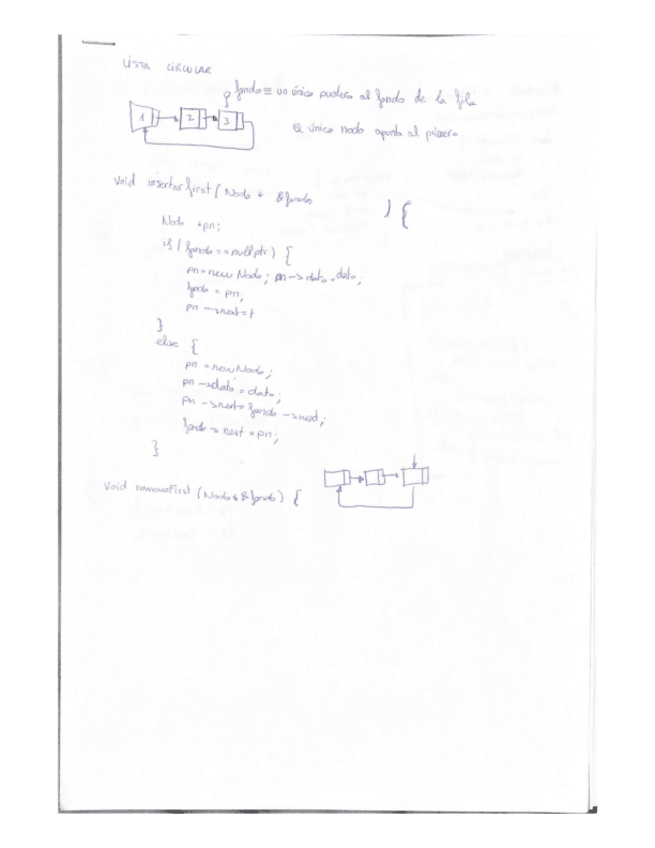 LISTA CIRCULAR
fondo ≡ un único puntero al fondo de la fila
1 2 3
El único nodo apunta al primero
void insertarfirst (Nodo * &fondo ) {
Nodo *pn;
if (fondo == nullptr) {
pn = new Nodo; pn -> dato = dato;
fondo = pn;
pn -> next = 
}
else {
pn = new Nodo;
pn -> dato = dato;
pn -> next = fondo -> next;
fondo -> next = pn;
}
void removeFirst (Nodo * &fondo) {